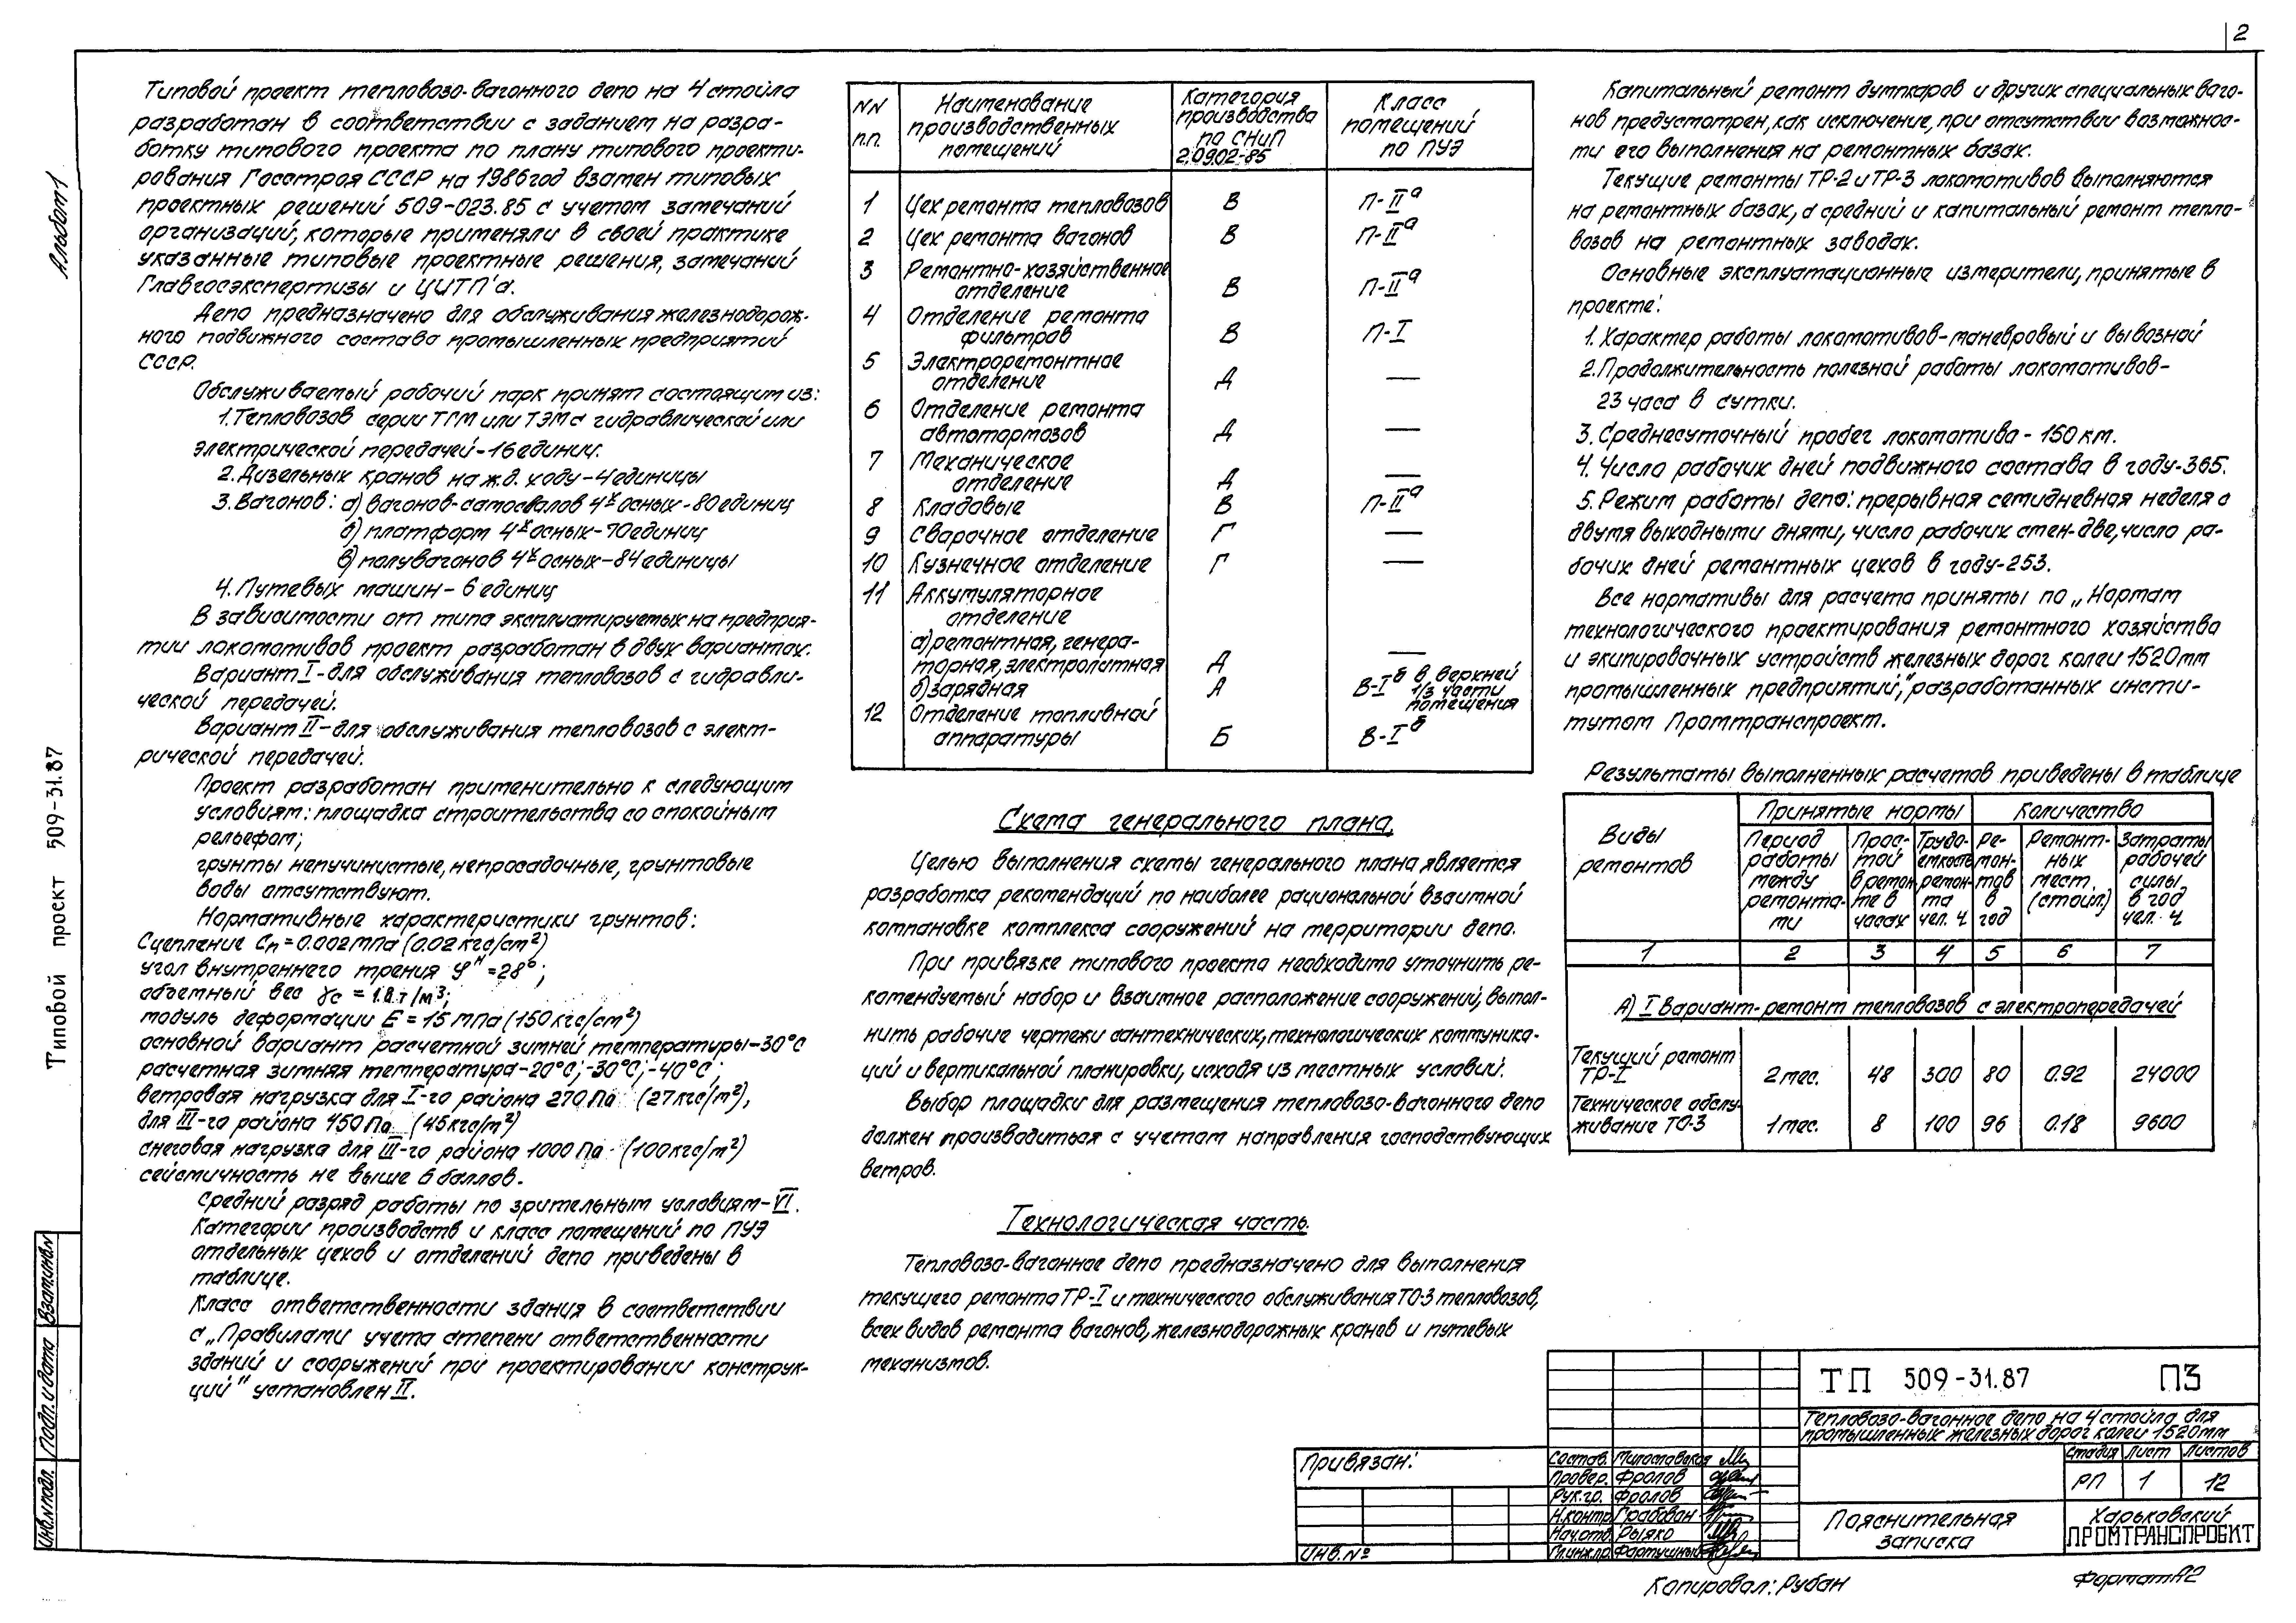 2
Альбом 1
Типовой проект 509-31.87
Типовой проект тепловозо-вагонного депо на 4 стойла
разработан в соответствии с заданием на разра-
ботку типового проекта по плану типового проекти-
рования Госстроя СССР на 1986 год взамен типовых
проектных решений 509-023.85 с учетом замечаний
организаций, которые применяли в своей практике
указанные типовые проектные решения, замечаний
Главгосэкспертизы и ЦИТП'а.
Депо предназначено для обслуживания железнодорож-
ного подвижного состава промышленных предприятий
СССР.
Обслуживаемый рабочий парк принят состоящим из:
1. Тепловозов серии ТГМ или ТЭМ с гидравлической или
электрической передачей-16 единиц.
2. Дизельных кранов на ж.д. ходу-4 единицы
3. Вагонов: а) вагонов-самосвалов 4х осных-80 единиц
б) платформ 4х осных-70 единиц
в) полувагонов 4х осных-84 единицы
4. Путевых машин-6 единиц
В зависимости от типа эксплуатируемых на предприя-
тии локомотивов проект разработан в двух вариантах.
Вариант I-для обслуживания тепловозов с гидравли-
ческой передачей.
Вариант II-для обслуживания тепловозов с элект-
рической передачей.
Проект разработан применительно к следующим
условиям: площадка строительства со спокойным
рельефом;
грунты непучинистые, непросадочные, грунтовые
воды отсутствуют.
Нормативные характеристики грунтов:
Сцепление Cн=0.002мПа (0.02 кгс/см²)
угол внутреннего трения φн=28°;
объемный вес γс = 1.8 т/м³;
модуль деформации E = 15 мПа (150 кгс/см²)
основной вариант расчетной зимней температуры-30°С
расчетная зимняя температура-20°С;-30°С;-40°С;
ветровая нагрузка для I-го района 270 Па (27кгс/м²),
для III-го района 450 Па (45кгс/м²)
снеговая нагрузка для III-го района 1000 Па (100кгс/м²)
сейсмичность не выше 6 баллов.
Средний разряд работы по зрительным условиям-VI.
Категории производств и класс помещений по ПУЭ
отдельных цехов и отделений депо приведены в
таблице.
Класс ответственности здания в соответствии
с „Правилами учета степени ответственности
зданий и сооружений при проектировании конструк-
ций" установлен II.
NN п.п. Наименование производственных помещений Категория производства по СНиП 2.09.02-85 Класс помещений по ПУЭ
1 Цех ремонта тепловозов В П-IIа
2 Цех ремонта вагонов В П-IIа
3 Ремонтно-хозяйственное
отделение В П-IIа
4 Отделение ремонта
фильтров В П-I
5 Электроремонтное
отделение Д —
6 Отделение ремонта
автотормозов Д —
7 Механическое
отделение Д —
8 Кладовые В П-IIа
9 Сварочное отделение Г —
10 Кузнечное отделение Г —
11 Аккумуляторное
отделение
а) ремонтная, генера-
торная, электролитная Д —
б) зарядная А В-Iб в верхней 1/3 части помещения
12 Отделение топливной
аппаратуры Б В-Iб
Схема генерального плана.
Целью выполнения схемы генерального плана является
разработка рекомендаций по наиболее рациональной взаимной
компановке комплекса сооружений на территории депо.
При привязке типового проекта необходимо уточнить ре-
комендуемый набор и взаимное расположение сооружений, выпол-
нить рабочие чертежи сантехнических, технологических коммуника-
ций и вертикальной планировки, исходя из местных условий.
Выбор площадки для размещения тепловозо-вагонного депо
должен производиться с учетом направления господствующих
ветров.
Технологическая часть.
Тепловозо-вагонное депо предназначено для выполнения
текущего ремонта ТР-I и технического обслуживания ТО-3 тепловозов,
всех видов ремонта вагонов, железнодорожных кранов и путевых
механизмов.
Капитальный ремонт думпкаров и других специальных ваго-
нов предусмотрен, как исключение, при отсутствии возможнос-
ти его выполнения на ремонтных базах.
Текущие ремонты ТР-2 и ТР-3 локомотивов выполняются
на ремонтных базах, а средний и капитальный ремонт тепло-
возов на ремонтных заводах.
Основные эксплуатационные измерители, принятые в
проекте:
1. Характер работы локомотивов-маневровый и вывозной
2. Продолжительность полезной работы локомотивов-
23 часа в сутки.
3. Среднесуточный пробег локомотива - 150 км.
4. Число рабочих дней подвижного состава в году-365.
5. Режим работы депо: прерывная семидневная неделя с
двумя выходными днями, число рабочих смен-две, число ра-
бочих дней ремонтных цехов в году-253.
Все нормативы для расчета приняты по „Нормам
технологического проектирования ремонтного хозяйства
и экипировочных устройств железных дорог колеи 1520мм
промышленных предприятий," разработанных инсти-
тутом Промтранспроект.
Результаты выполненных расчетов приведены в таблице
Виды ремонтов Принятые нормы Количество
Период работы между ремонта-ми Прос-той в ремон-те в часах Трудо-емкость ремон-та чел. ч. Ре-мон-тов в год Ремонт-ных мест. (стойл) Затраты рабочей силы в год чел. ч.
1 2 3 4 5 6 7
А) I Вариант-ремонт тепловозов с электропередачей
Текущий ремонт
ТР-I 2 мес. 48 300 80 0.92 24000
Техническое обслу-
живание ТО-3 1 мес. 8 100 96 0.18 9600
Инв.N подл. Подп. и дата Взам.инв.N
Привязан:
Инв.№
Состав. Милославская
Провер. Фролов
Рук.гр. Фролов
Н.контр. Грабован
Нач.отд. Рыяко
Гл.инж.пр. Фартушный
ТП 509-31.87 ПЗ
Тепловозо-вагонное депо на 4 стойла для
промышленных железных дорог колеи 1520мм
Стадия Лист Листов
РП 1 12
Пояснительная
записка
Харьковский
ПРОМТРАНСПРОЕКТ
Копировал: Рубан
Формат А2